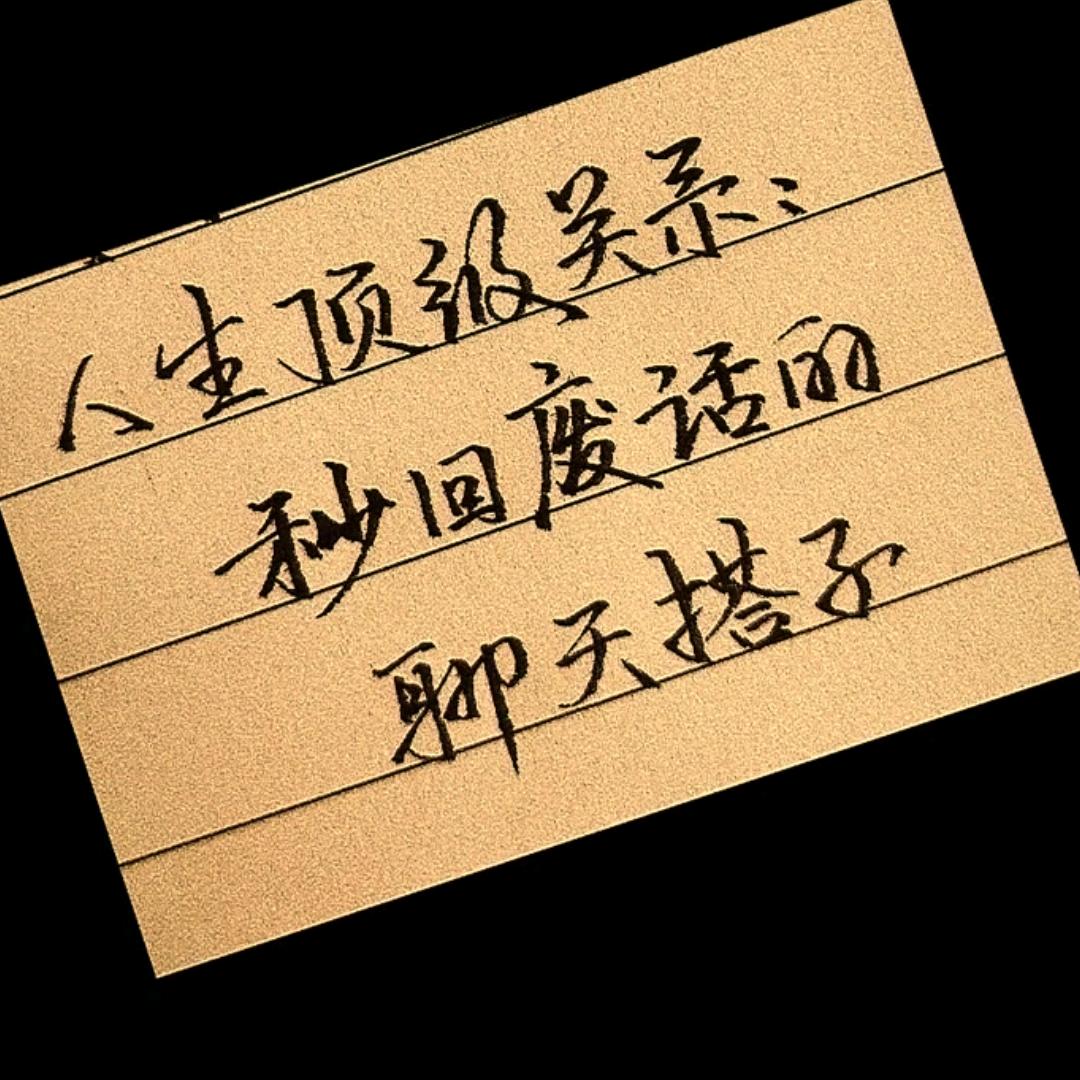 人生顶级关系：
秒回废话的
聊天搭子